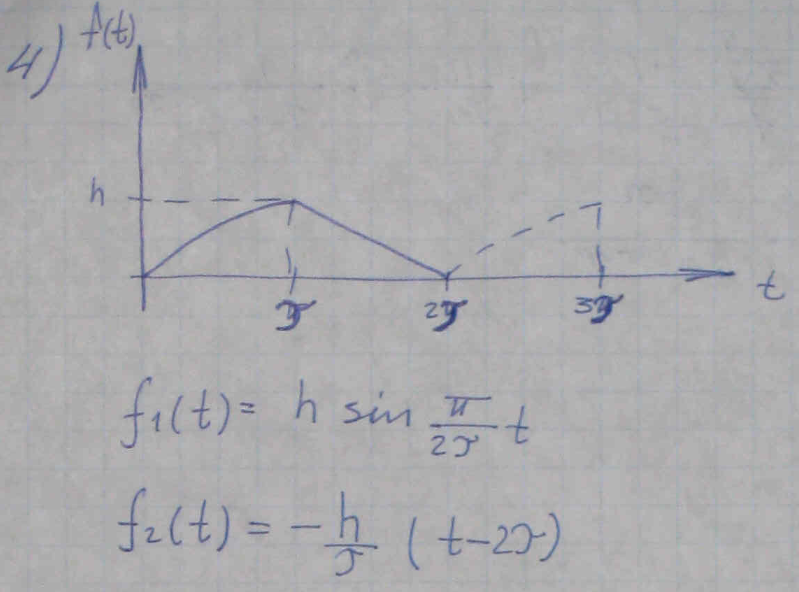 4) f(t)
h
τ 2τ 3τ t
f₁(t) = h sin π/2τ t
f₂(t) = - h/τ (t-2τ)